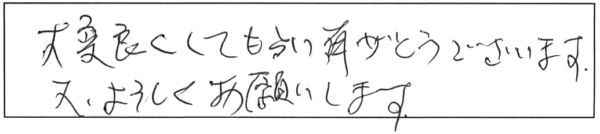 大変良くしてもらい有がとうございます.
又、よろしくお願いします.